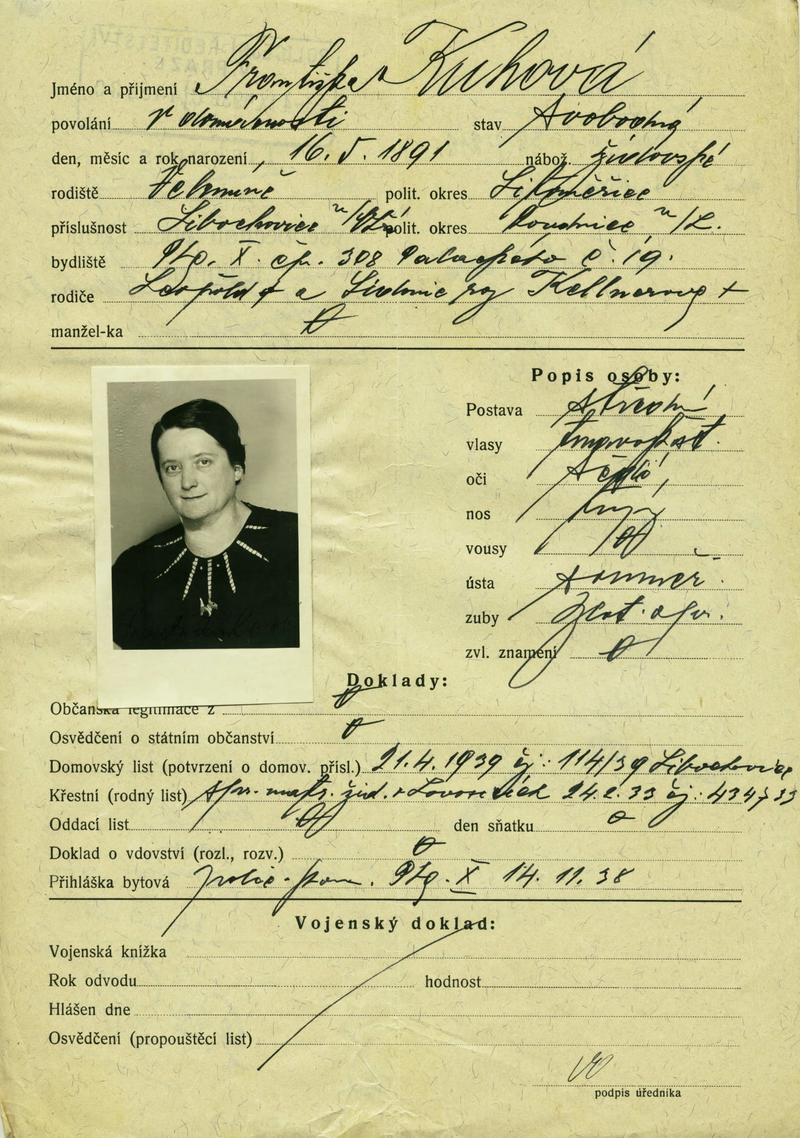 Jméno a přijmení Františka Kuhová
povolání v domácnosti stav svobodná
den, měsíc a rok narození 16. 5. 1891 nábož. židovské
rodiště Velemíně polit. okres Litoměřice
příslušnost Libochovice n/ polit. okres Roudnice n/L.
bydliště Phg. X. čp. 308 Palackého č. 19.
rodiče Leopold + a Sidonie roz Kellnerova +
manžel-ka
Popis osoby:
Postava střední
vlasy
oči šedé
nos
vousy
ústa souměr.
zuby zlat. opr.
zvl. znamení
Doklady:
Občanská legitimace z
Osvědčení o státním občanství
Domovský list (potvrzení o domov. přísl.) 21. 4. 1939 čj: 114/39 Libochovice
Křestní (rodný list) žid. v Lovosicích 24. 2. 33 čj: 434/33
Oddací list den sňatku
Doklad o vdovství (rozl., rozv.)
Přihláška bytová polic. kom. Phg. X 14. 11. 38
Vojenský doklad:
Vojenská knížka
Rok odvodu hodnost
Hlášen dne
Osvědčení (propouštěcí list)
podpis úředníka